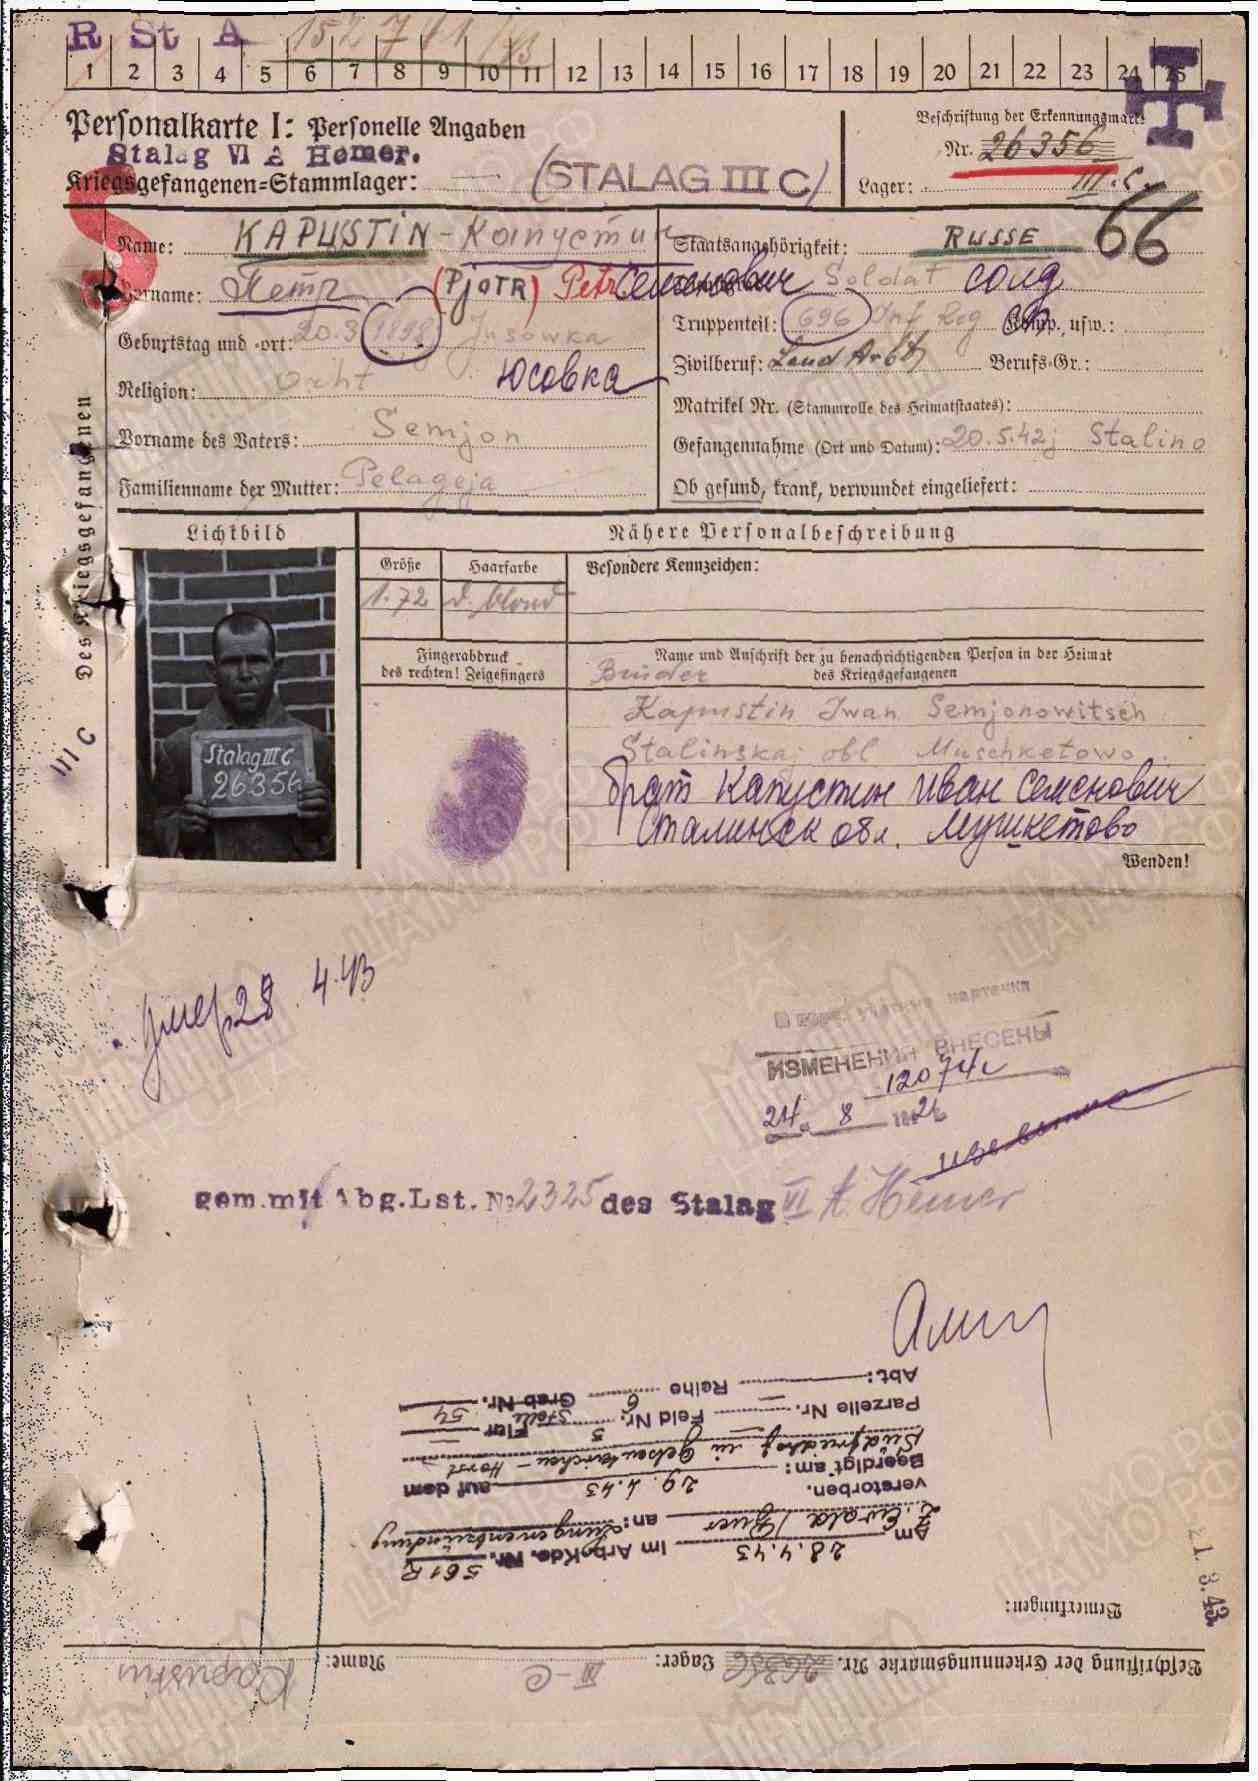 R St A 152741/43
1 2 3 4 5 6 7 8 9 10 11 12 13 14 15 16 17 18 19 20 21 22 23 24 25
Personalkarte I: Personelle Angaben
Beschriftung der Erkennungsmarke
Stalag VI A Hemer.
Nr. 26356
Kriegsgefangenen=Stammlager: (STALAG III C)
Lager: III. C.
66
Name: KAPUSTIN - Капустин
Staatsangehörigkeit: RUSSE
Vorname: Петр (PJOTR) Petr Семенович Soldat солд
Geburtstag und -ort: 20.3.1898 Jusowka
Truppenteil: 696 Inf Reg Komp. usw.:
Юсовка
Zivilberuf: Land Arb Berufs-Gr.:
Religion: Orht
Matrikel Nr. (Stammrolle des Heimatstaates):
Vorname des Vaters: Semjon
Gefangennahme (Ort und Datum): 20.5.42j Stalino
Familienname der Mutter: Pelageja
Ob gesund, krank, verwundet eingeliefert:
Des Kriegsgefangenen
III C
Lichtbild
Nähere Personalbeschreibung
Größe Haarfarbe Besondere Kennzeichen:
1.72 d. blond
Stalag III C
26356
Fingerabdruck
des rechten! Zeigefingers
Name und Anschrift der zu benachrichtigenden Person in der Heimat
des Kriegsgefangenen
Bruder
Kapustin Iwan Semjonowitsch
Stalinskaj obl Muschketowo
брат Капустин Иван Семенович
Сталинск обл. Мушкетово
Wenden!
умер 28.4.43
карточка
ИЗМЕНЕНИЯ ВНЕСЕНЫ
12074
24. 8
gem. mit Abg.Lst. № 2325 des Stalag VI A Hemer
Beschriftung der Erkennungsmarke Nr. 26356 Lager: III-C Name: Kapustin
Bemerkungen:
21.3.43
Am 28.4.43 im Arb.Kdo. Nr. 561 R
Z. Ewald / Buer an: Lungenentzündung
verstorben.
Beerdigt am: 29.4.43 auf dem
Südfriedhof in Gelsenkirchen - Horst
Parzelle Nr. — Feld Nr. 5 Flur —
Abt: — Reihe 6 Stelle Grab Nr. 54